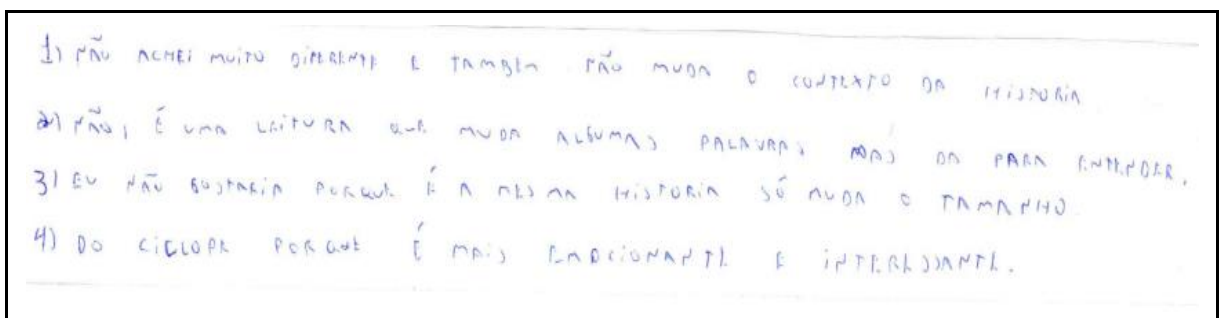 1) NÃO ACHEI MUITO DIFERENTE E TAMBEM NÃO MUDA O CONTEXTO DA HISTORIA
2) NÃO, É UMA LEITURA QUE MUDA ALGUMAS PALAVRAS MAS DA PARA ENTENDER.
3) EU NÃO GOSTARIA PORQUE É A MESMA HISTORIA SÓ MUDA O TAMANHO
4) DO CICLOPE PORQUE É MAIS EMOCIONANTE E INTERESSANTE.